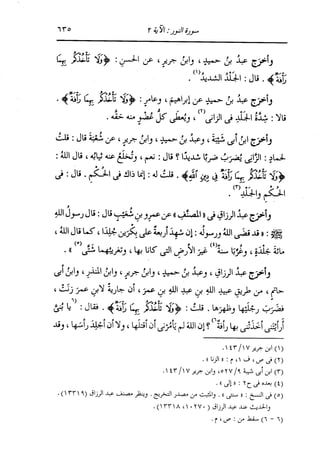 سورة النور : الآية ٢ ٦٣٥
وأخرج عبدُ بنُ حميدٍ ، وابنُ جريرٍ ، عن الحسنِ : ﴿وَلَا تَأْخُذْكُم بِهِمَا
رَأْفَةٌ﴾ . قال : الجَلْدُ الشديدُ(١) .
وأخرَج عبدُ بنُ حميدٍ عن إبراهيمَ ، وعامرٍ : ﴿وَلَا تَأْخُذْكُم بِهِمَا رَأْفَةٌ﴾ .
قالا : شدةُ الجَلْدِ في الزاني(٢) ، ويُعطى كلُّ عُضْوٍ منه حقَّه .
وأخرج ابنُ أبي شيبةَ ، وعبدُ بنُ حميدٍ ، وابنُ جريرٍ ، عن شعبةَ قال : قلتُ
لحمادٍ : الزاني يُضرَبُ ضربًا شديدًا ؟ قال : نعم ، وتُخلَعُ عنه ثيابُه ، قال اللهُ :
﴿وَلَا تَأْخُذْكُم بِهِمَا رَأْفَةٌ فِي دِينِ اللَّهِ﴾ . قلتُ له : إنما ذلك في الحُكْمِ . قال : في
الحُكْمِ والجَلْدِ(٣) .
وأخرَج عبدُ الرزاقِ في « المصنَّفِ » عن عمرِو بنِ شُعَيْبٍ قال : قال رسولُ اللهِ
ﷺ : « قد قضَى اللهُ ورسولُه : إن شَهِد أربعةٌ على بِكْرَيْن جُلِدا ، كما قال اللهُ ،
مائةَ جلدةٍ ، وغُرِّبا سنةً(٤) غيرَ الأرضِ التي كانا بها ، وتغريبُهما شتَّى(٥) » .
وأخرَج عبدُ الرزاقِ ، وعبدُ بنُ حميدٍ ، وابنُ جريرٍ ، وابنُ المنذرِ ، وابنُ أبي
حاتمٍ ، من طريقِ عبيدِ اللهِ بنِ عبدِ اللهِ بنِ عمرَ ، أن جاريةً لابنِ عمرَ زنَت ،
فضرَب رجلَيْها وظهرَها . فقلتُ : ﴿وَلَا تَأْخُذْكُم بِهِمَا رَأْفَةٌ﴾ . فقال : يا بُنَيَّ
أرأيتَني أخذَتْني بها رأفةٌ ؟ إن اللهَ لم يَأْمُرْني أن أقتُلَها ، ولا أن أجلِدَ رأسَها ، وقد
(١) ابن جرير ١٧/ ١٤٣.
(٢) في ص ، ف ١، م : « الزنا » .
(٣) ابن أبي شيبة ٩/ ٥٢٧، وابن جرير ١٧/ ١٤٣.
(٤) بعده في ح٢ : « إلى » .
(٥) في النسخ : « سنتى » . والمثبت من مصدر التخريج . وينظر مصنف عبد الرزاق (١٣٣١٩) .
والحديث عند عبد الرزاق (١٠٢٧٠ ، ١٣٣١٨) .
(٦ - ٦) سقط من : ص ، م .